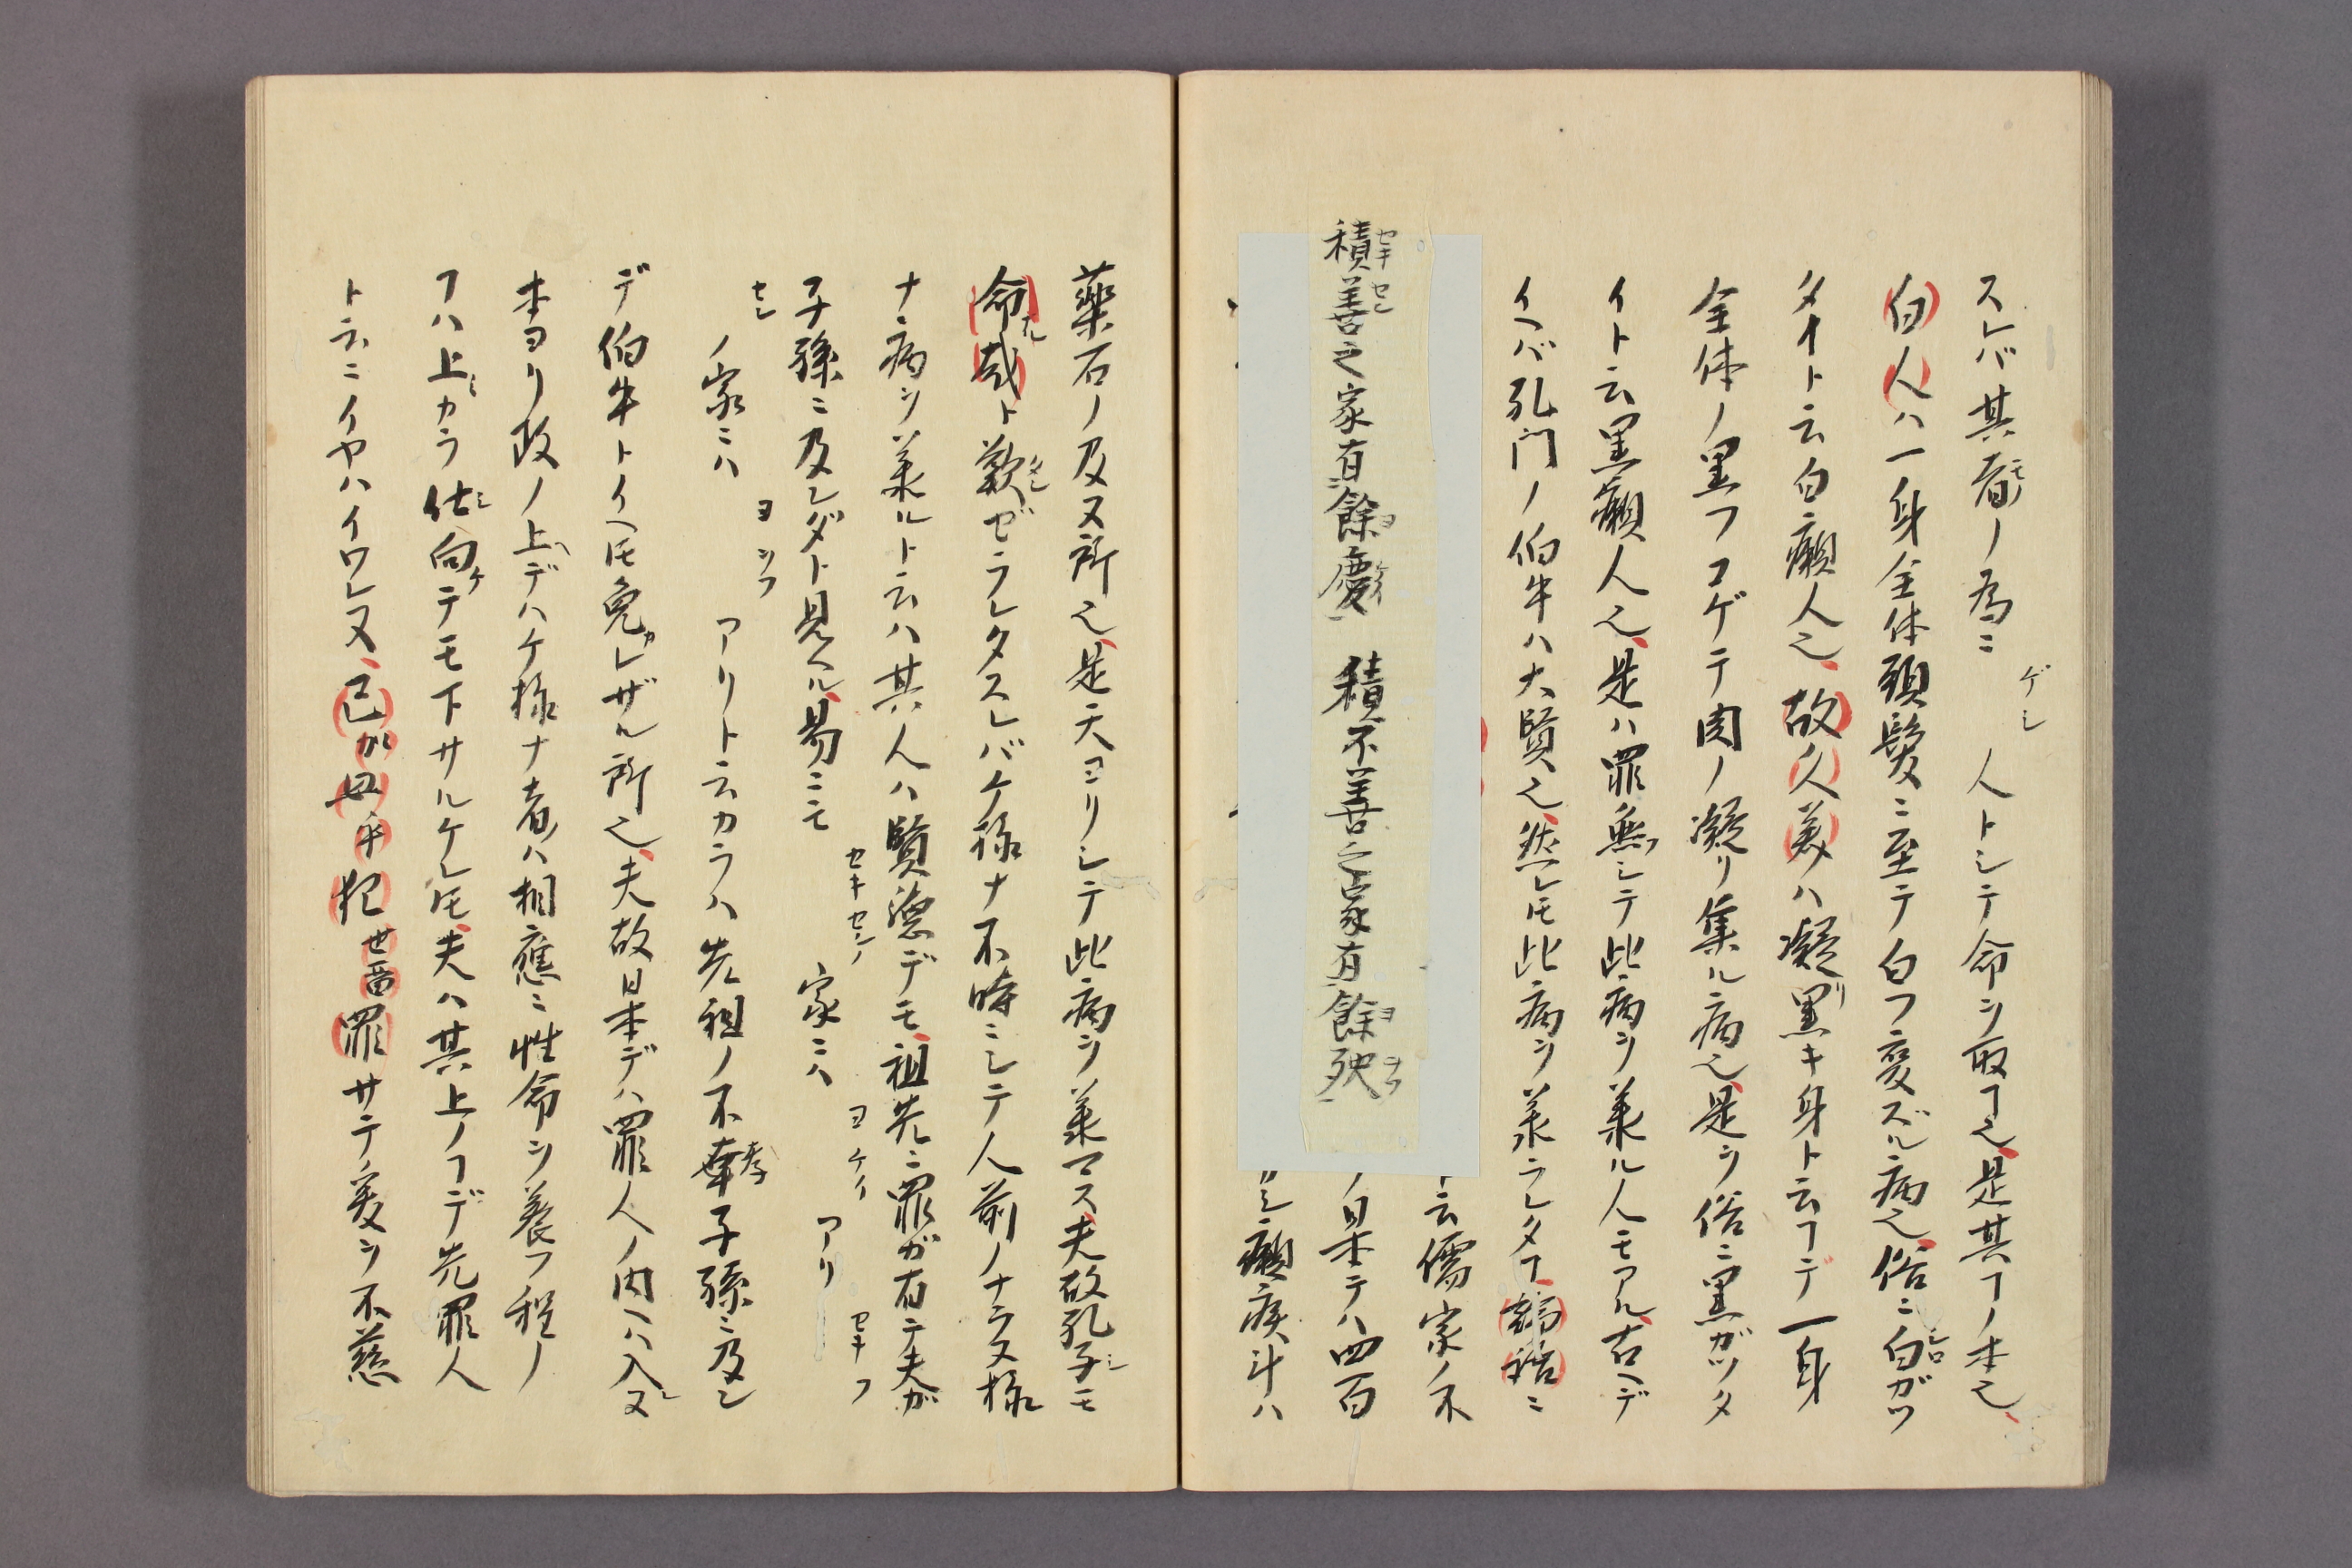 スレバ其者ノ為ニ ゲシ 人トシテ命ヲ取ヿ也、是其ヿノ本也、
白人ハ一身全体頭髪ニ至テ白フ変ズル病也、俗ニ白ガツ
タイト云白癩人也、故久美ハ凝リ黒キ身ト云ヿデ一身
全体ノ黒フコゲテ肉ノ凝リ集ル病也、是ヲ俗ニ黒ガツタ
イト云黒癩人也、是ハ罪無シテ此病ヲ羕ル人モアル、古ヘデ
イヘバ孔门ノ伯牛ハ大賢也、然レ𪜈此病ヲ羕ラレタヿ、論語ニ
ト云儒家ノ不
積善之家有餘慶 積不善之家有餘殃
セキ セン ヨ ケイ ヨ ヲウ
ノ日本テハ四百
シ癩疾斗ハ
薬石ノ及ヌ所也、是天ヨリシテ此病ヲ羕マス、夫故孔子モ
命哉ト歎ゼラレタスレバケ様ナ不時ニシテ人前ノナラヌ様
ナ病ヲ羕ルト云ハ其人ハ賢徳デモ、祖先ニ罪ガ有テ夫が
子孫ニ及ンダト見ヘル、易ニモ セキセンノ 家ニハ ヨケイ アリ セキフ
センノ家ニハ ヨヲフ アリト云カラハ先祖ノ不幸子孫ニ及ン
デ伯牛トイヘ𪜈免レザル所也、夫故日本デハ罪人ノ内ヘハ入ヌ
本ヨリ政ノ上デハケ様ナ者ハ相應ニ性命ヲ養フ程ノ
ヿハ上カラ仕向テモ下サルケレ𪜈、夫ハ其上ノヿデ先罪人
ト云ニイヤハイワレヌ、己が母乎犯世畄罪サテノ戔ヲ不慈